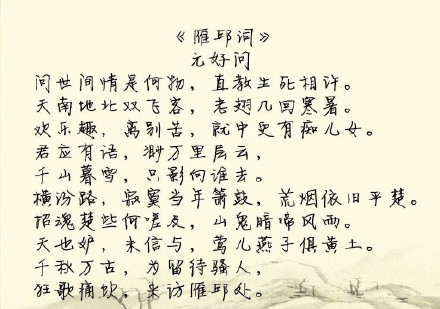 《雁邱词》
元好问
问世间情是何物，直教生死相许。
天南地北双飞客，老翅几回寒暑。
欢乐趣，离别苦，就中更有痴儿女。
君应有语，渺万里层云，
千山暮雪，只影向谁去。
横汾路，寂寞当年箫鼓，荒烟依旧平楚。
招魂楚些何嗟及，山鬼暗啼风雨。
天也妒，未信与，莺儿燕子俱黄土。
千秋万古，为留待骚人，
狂歌痛饮，来访雁邱处。